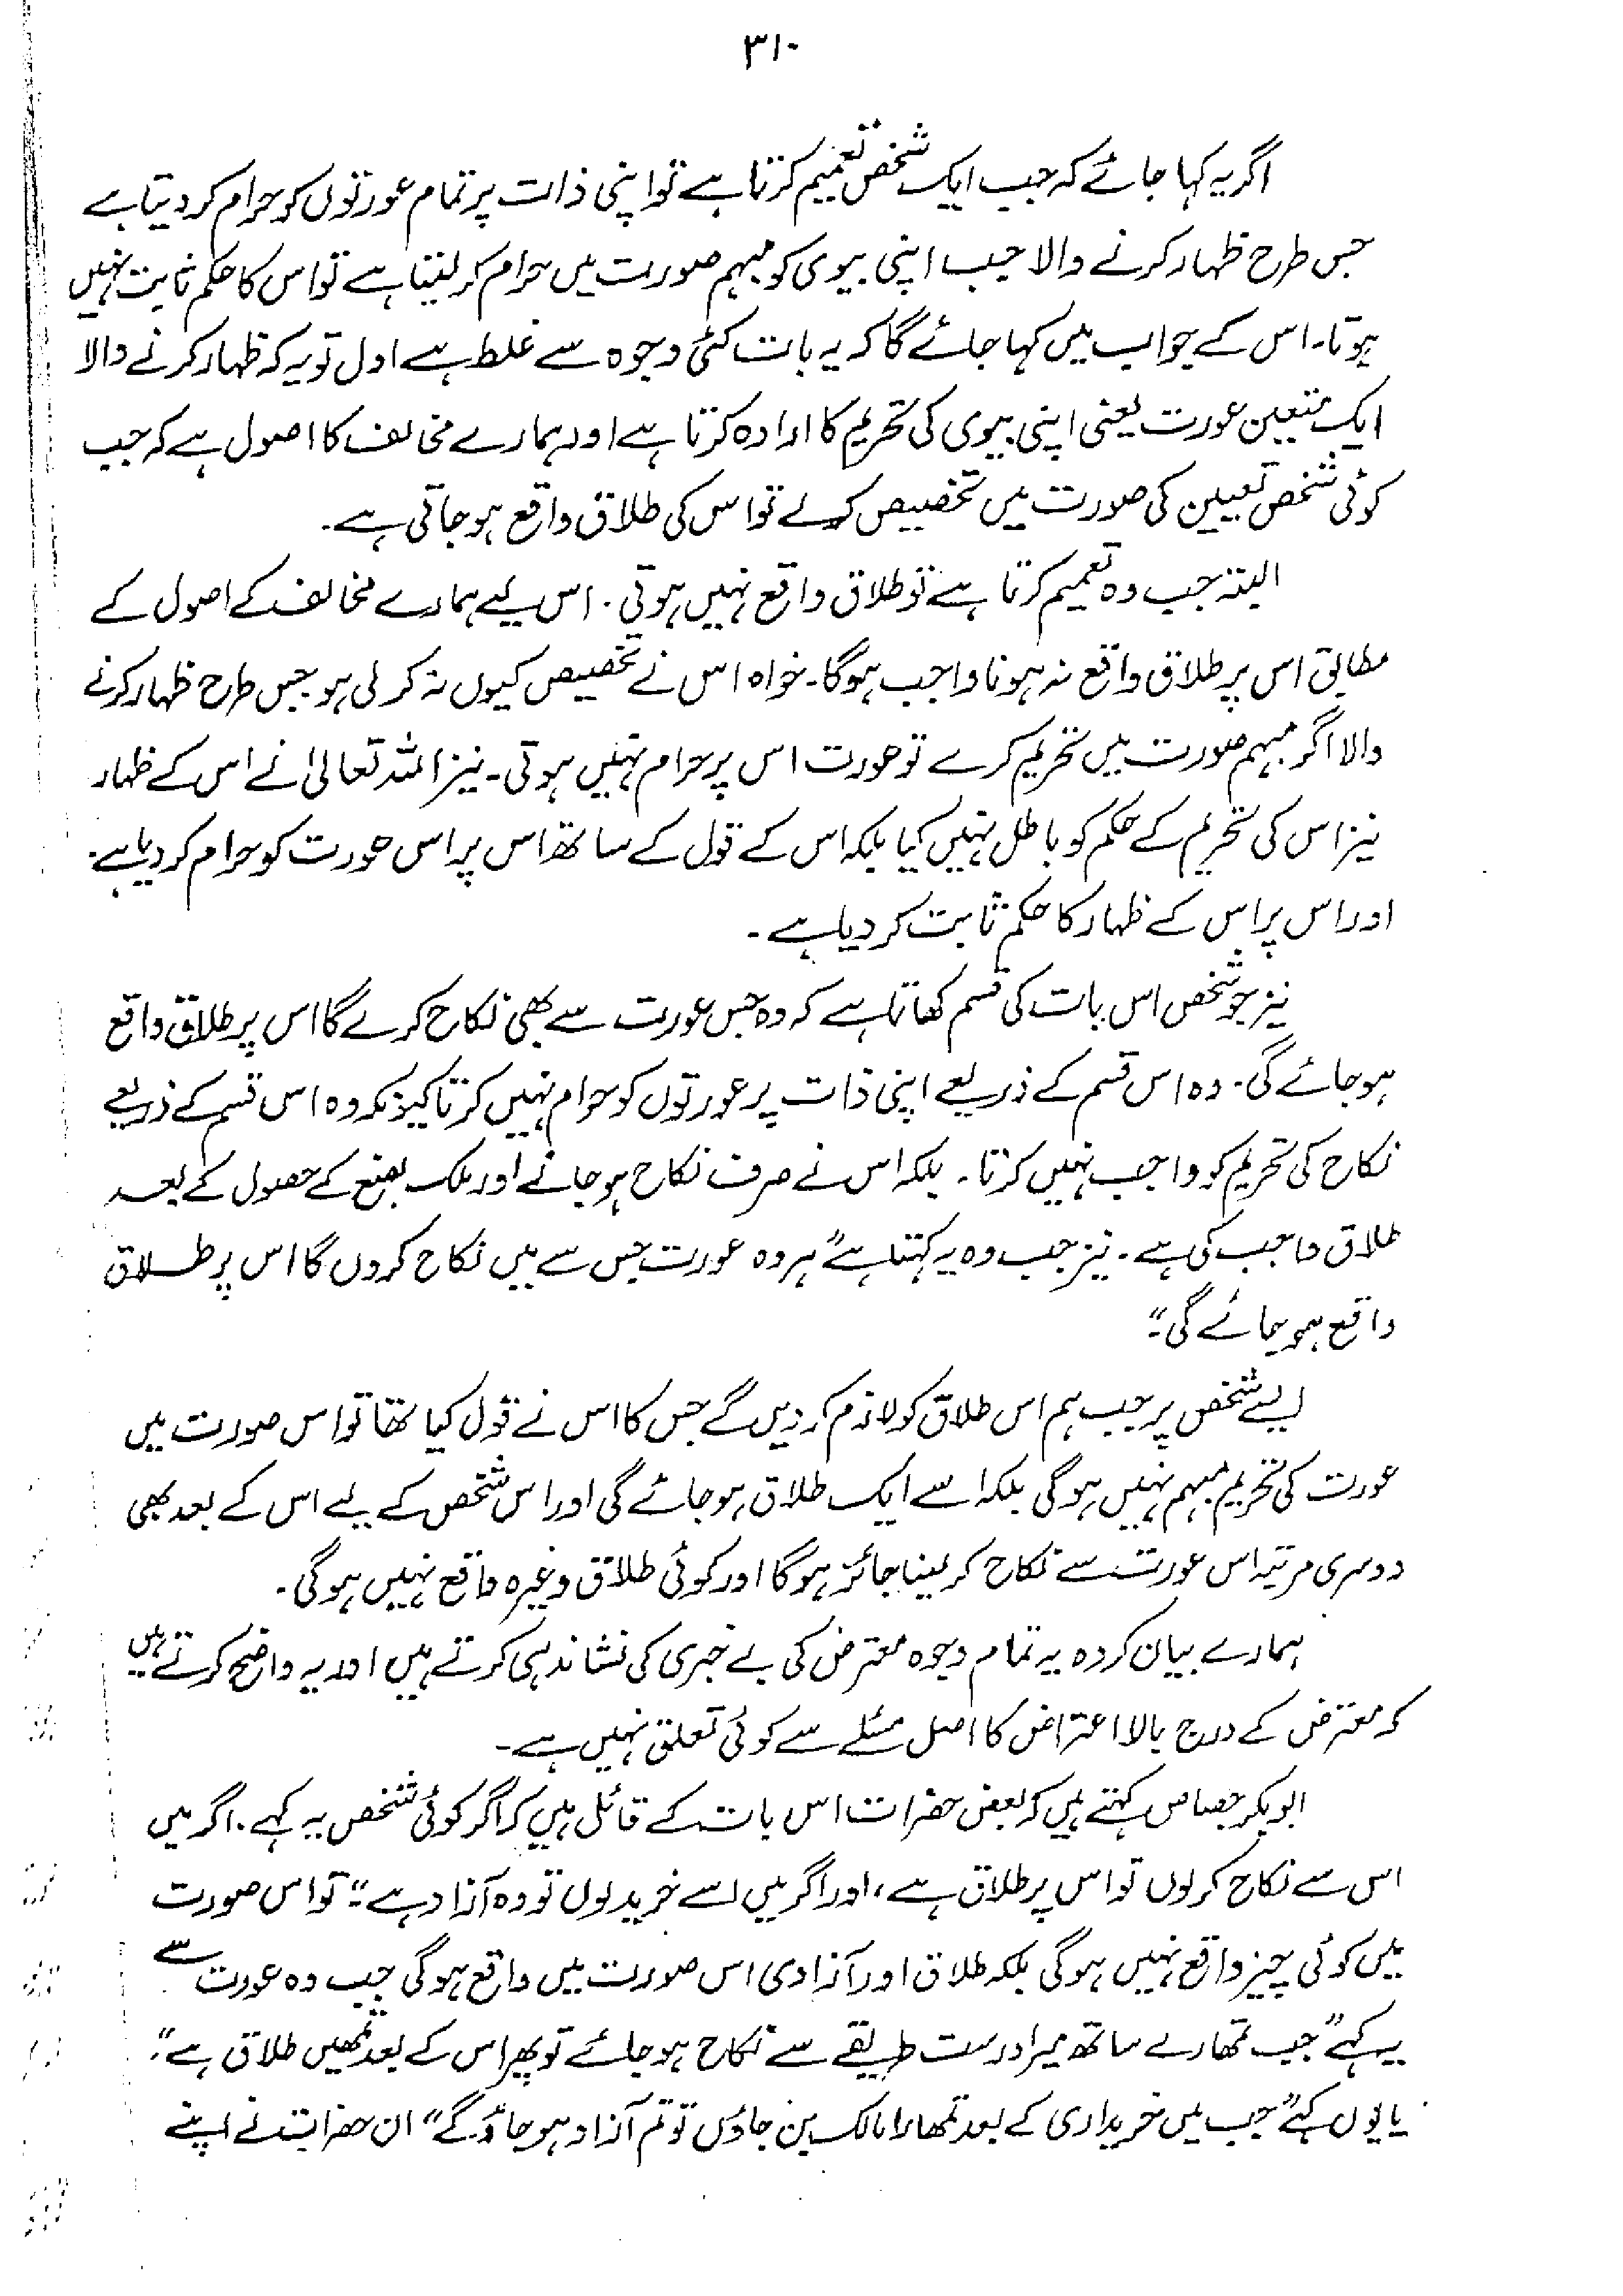 ۳۱۰
اگر یہ کہا جائے کہ جب ایک شخص تعمیم کرتا ہے تو اپنی ذات پر تمام عورتوں کو حرام کر دیتا ہے
جس طرح ظہار کرنے والا جب اپنی بیوی کو مبہم صورت میں حرام کر لیتا ہے تو اس کا حکم ثابت نہیں
ہوتا۔ اس کے جواب میں کہا جائے گا کہ یہ بات کئی وجوہ سے غلط ہے اول تو یہ کہ ظہار کرنے والا
ایک متعین عورت یعنی اپنی بیوی کی تحریم کا ارادہ کرتا ہے اور ہمارے مخالف کا اصول ہے کہ جب
کوئی شخص تعیین کی صورت میں تخصیص کرلے تو اس کی طلاق واقع ہو جاتی ہے۔
البتہ جب وہ تعمیم کرتا ہے تو طلاق واقع نہیں ہوتی۔ اس لیے ہمارے مخالف کے اصول کے
مطابق اس پر طلاق واقع نہ ہونا واجب ہوگا۔ خواہ اس نے تخصیص کیوں نہ کرلی ہو جس طرح ظہار کرنے
والا اگر مبہم صورت میں تحریم کرے تو عورت اس پر حرام نہیں ہوتی۔ نیز اللہ تعالیٰ نے اس کے ظہار
نیز اس کی تحریم کے حکم کو باطل نہیں کیا بلکہ اس کے قول کے ساتھ اس پر اس عورت کو حرام کر دیا ہے۔
اور اس پر اس کے ظہار کا حکم ثابت کر دیا ہے۔
نیز جو شخص اس بات کی قسم کھاتا ہے کہ وہ جس عورت سے بھی نکاح کرے گا اس پر طلاق واقع
ہو جائے گی۔ وہ اس قسم کے ذریعے اپنی ذات پر عورتوں کو حرام نہیں کرتا کیونکہ وہ اس قسم کے ذریعے
نکاح کی تحریم کو واجب نہیں کرتا۔ بلکہ اس نے صرف نکاح ہو جانے اور ملک بضع کے حصول کے بعد
طلاق واجب کی ہے۔ نیز جب وہ یہ کہتا ہے "ہر وہ عورت جس سے میں نکاح کروں گا اس پر طلاق
واقع ہو جائے گی"۔
ایسے شخص پر جب ہم اس طلاق کو لازم کر دیں گے جس کا اس نے قول کیا تھا تو اس صورت میں
عورت کی تحریم مبہم نہیں ہوگی بلکہ اسے ایک طلاق ہو جائے گی اور اس شخص کے لیے اس کے بعد بھی
دوسری مرتبہ اس عورت سے نکاح کر لینا جائز ہوگا اور کوئی طلاق وغیرہ واقع نہیں ہوگی۔
ہمارے بیان کردہ یہ تمام وجوہ معترض کی بے خبری کی نشاندہی کرتے ہیں اور یہ واضح کرتے ہیں
کہ معترض کے درج بالا اعتراض کا اصل مسئلے سے کوئی تعلق نہیں ہے۔
ابوبکر جصاص کہتے ہیں کہ بعض حضرات اس بات کے قائل ہیں کہ اگر کوئی شخص یہ کہے۔ اگر میں
اس سے نکاح کر لوں تو اس پر طلاق ہے، اور اگر میں اسے خرید لوں تو وہ آزاد ہے"۔ تو اس صورت
میں کوئی چیز واقع نہیں ہوگی بلکہ طلاق اور آزادی اس صورت میں واقع ہوگی جب وہ عورت سے
یہ کہے "جب تمھارے ساتھ میرا درست طریقے سے نکاح ہو جائے تو پھر اس کے بعد تمھیں طلاق ہے"۔
یا یوں کہے "جب میں خریداری کے بعد تمھارا مالک بن جاؤں تو تم آزاد ہو جاؤ گے" ان حضرات نے اپنے